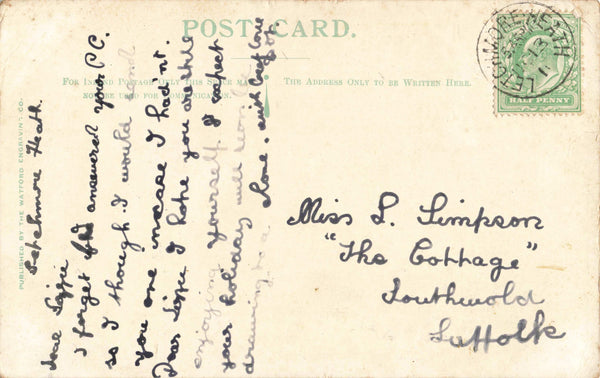 POST CARD.
FOR INLAND POSTAGE ONLY THIS SPACE MAY
NOT BE USED FOR COMMUNICATION.
THE ADDRESS ONLY TO BE WRITTEN HERE.
PUBLISHED BY THE WATFORD ENGRAVING CO.
LETCHMORE HEATH
11
HALF PENNY
Letchmore Heath.
Dear Lizzie
I forget if I answered your P.C.
so I though I would send
you one incase I hadn't.
Dear Lizzie I hope you are still
enjoying yourself. I expect
your holidays will soon be
drawing to a close. with best love
Miss L. Simpson
"The Cottage"
Southwold
Suffolk